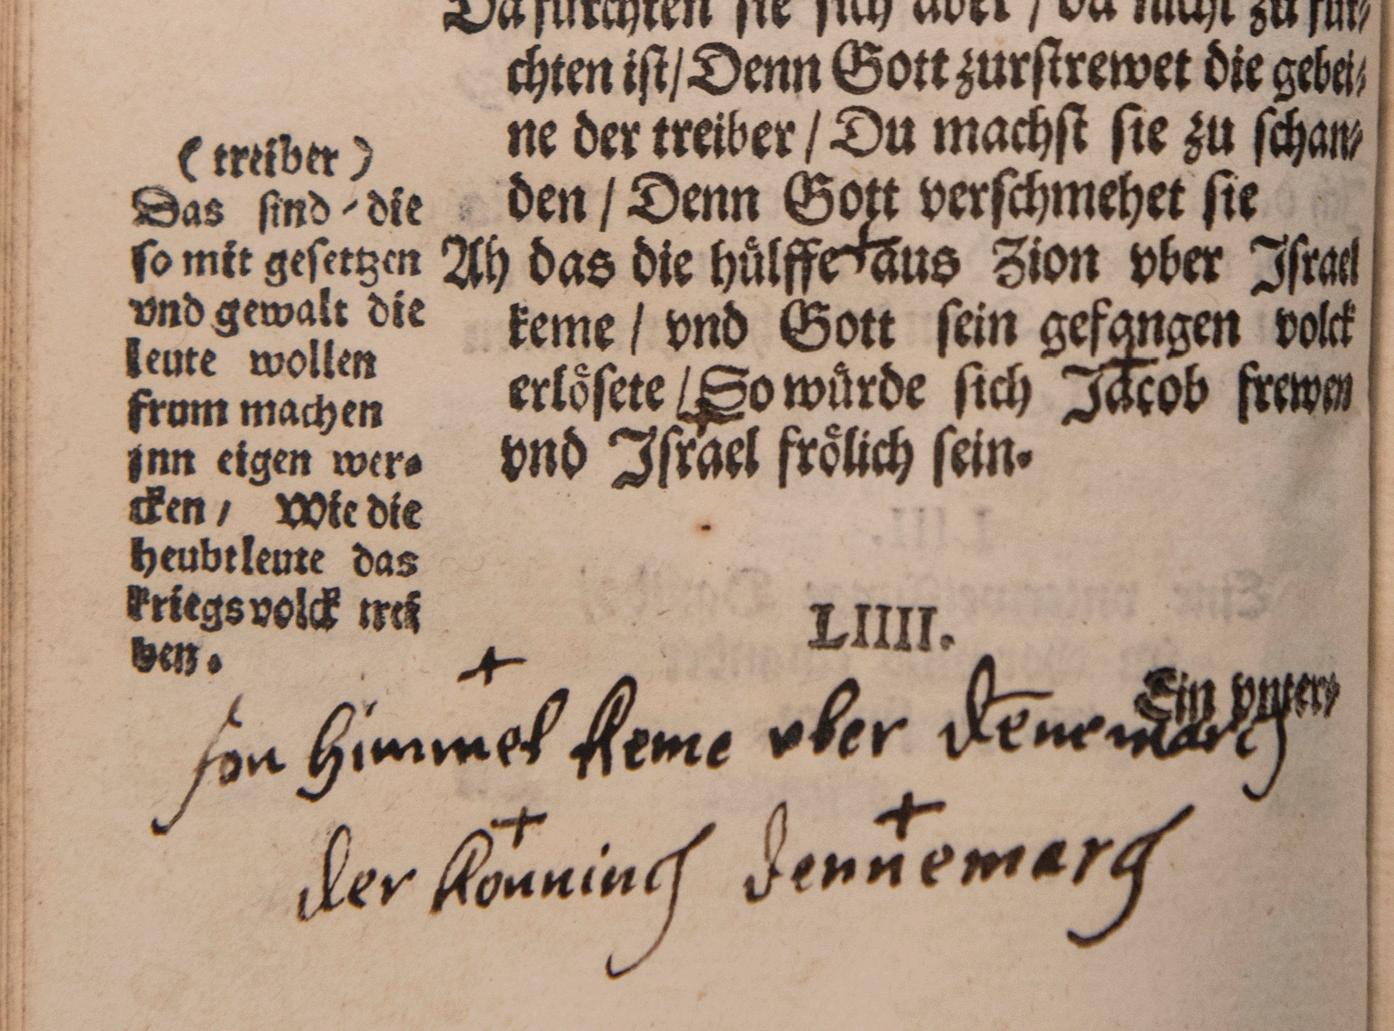 Da furchten sie sich aber / da nicht zu fur⸗
chten ist/ Denn Gott zurstrewet die gebei⸗
ne der treiber / Du machst sie zu schan⸗
den / Denn Gott verschmehet sie
Ah das die hülffe + aus Zion vber Israel
keme / vnd Gott sein gefangen volck
erlösete / So würde sich Jacob frewen
vnd Israel frölich sein.
( treiber )
Das sind / die
so mit gesettzen
vnd gewalt die
leute wollen
frum machen
jnn eigen wer⸗
cken / Wie die
heubtleute das
kriegsvolck trei
ben.
LIIII.
Ein vnter⸗
+
fon himmel keme vber denemarch
+ +
der könninch dennemarch